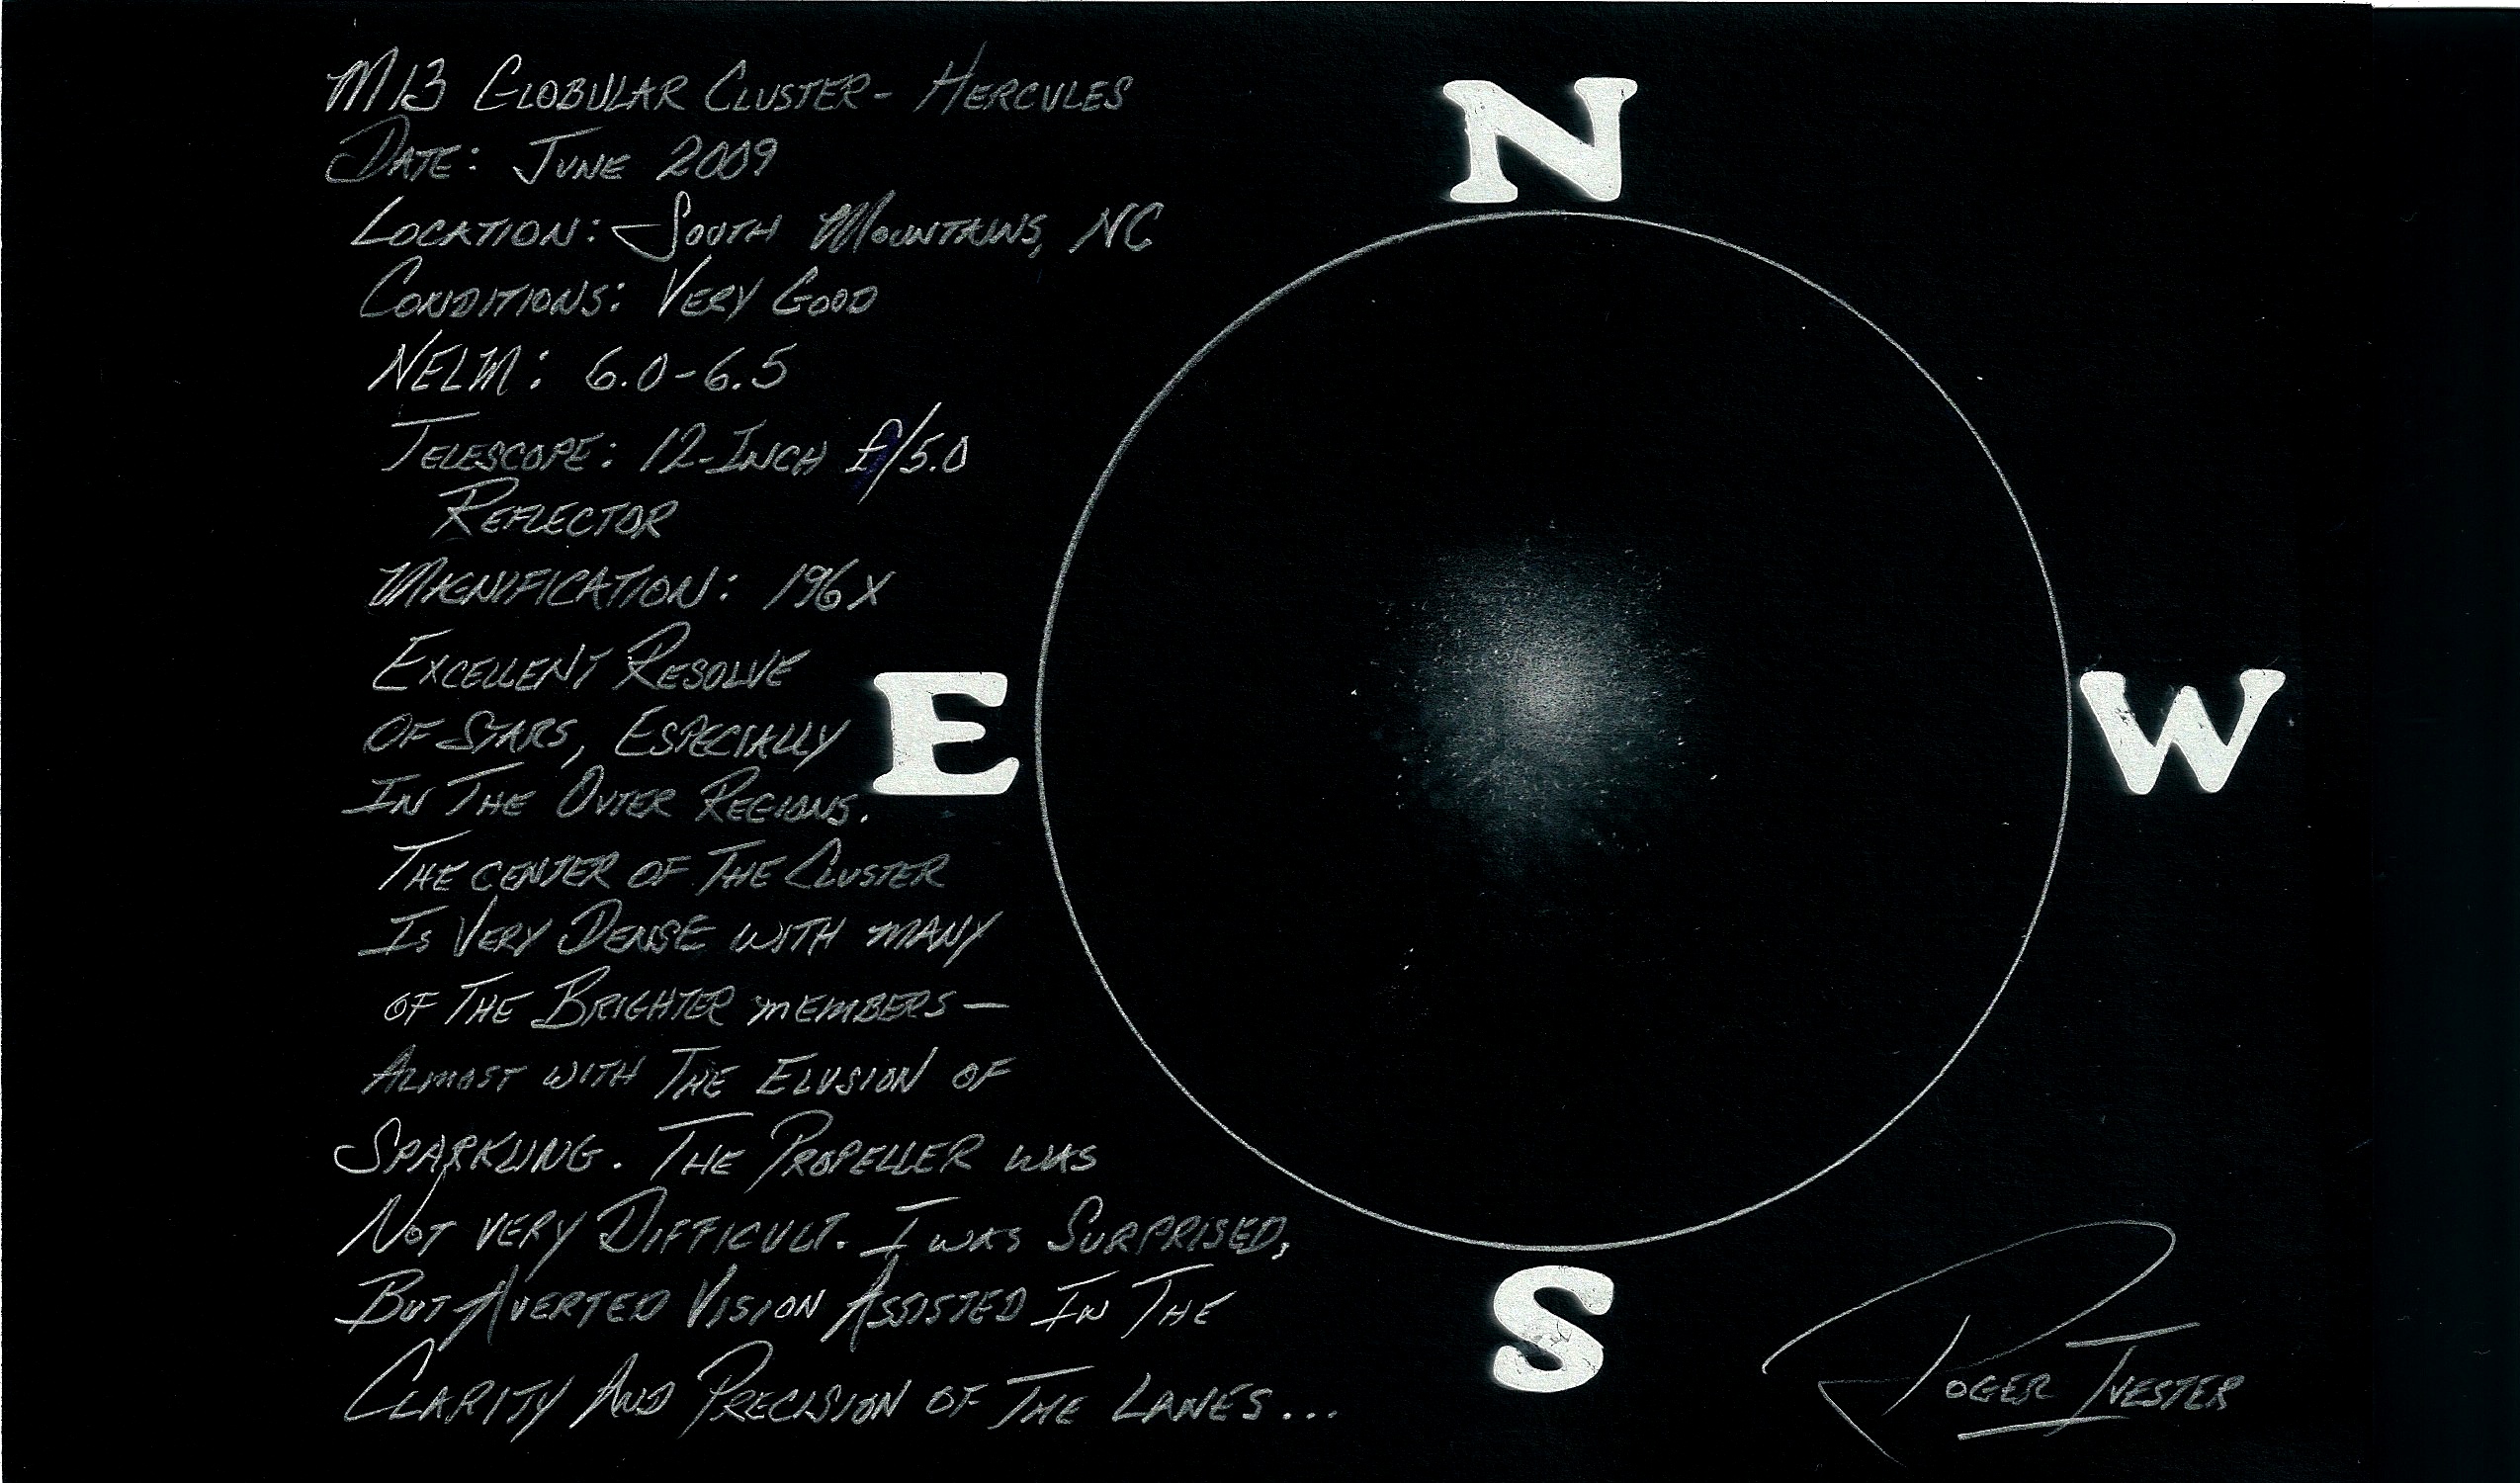 M13 GLOBULAR CLUSTER- HERCULES
DATE: JUNE 2009
LOCATION: SOUTH MOUNTAINS, NC
CONDITIONS: VERY GOOD
NELM: 6.0-6.5
TELESCOPE: 12-INCH f/5.0
REFLECTOR
MAGNIFICATION: 196X
EXCELLENT RESOLVE
OF STARS, ESPECIALLY
IN THE OUTER REGIONS.
THE CENTER OF THE CLUSTER
IS VERY DENSE WITH MANY
OF THE BRIGHTER MEMBERS—
ALMOST WITH THE ELUSION OF
SPARKLING. THE PROPELLER WAS
NOT VERY DIFFICULT. I WAS SURPRISED,
BUT AVERTED VISION ASSISTED IN THE
CLARITY AND PRECISION OF THE LANES...
N
E
W
S
ROGER IVESTER